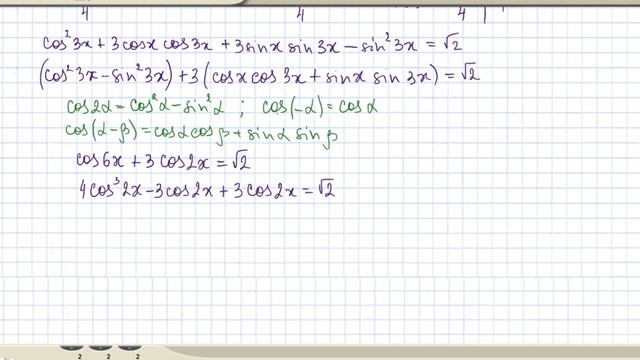 4 4 4
cos²3x + 3cosx cos3x + 3sinx sin3x − sin²3x = √2
(cos²3x − sin²3x) + 3(cosx cos3x + sinx sin3x) = √2
cos2α = cos²α − sin²α ; cos(−α) = cosα
cos(α−β) = cosα cosβ + sinα sinβ
cos6x + 3cos2x = √2
4cos³2x − 3cos2x + 3cos2x = √2
2 2 2